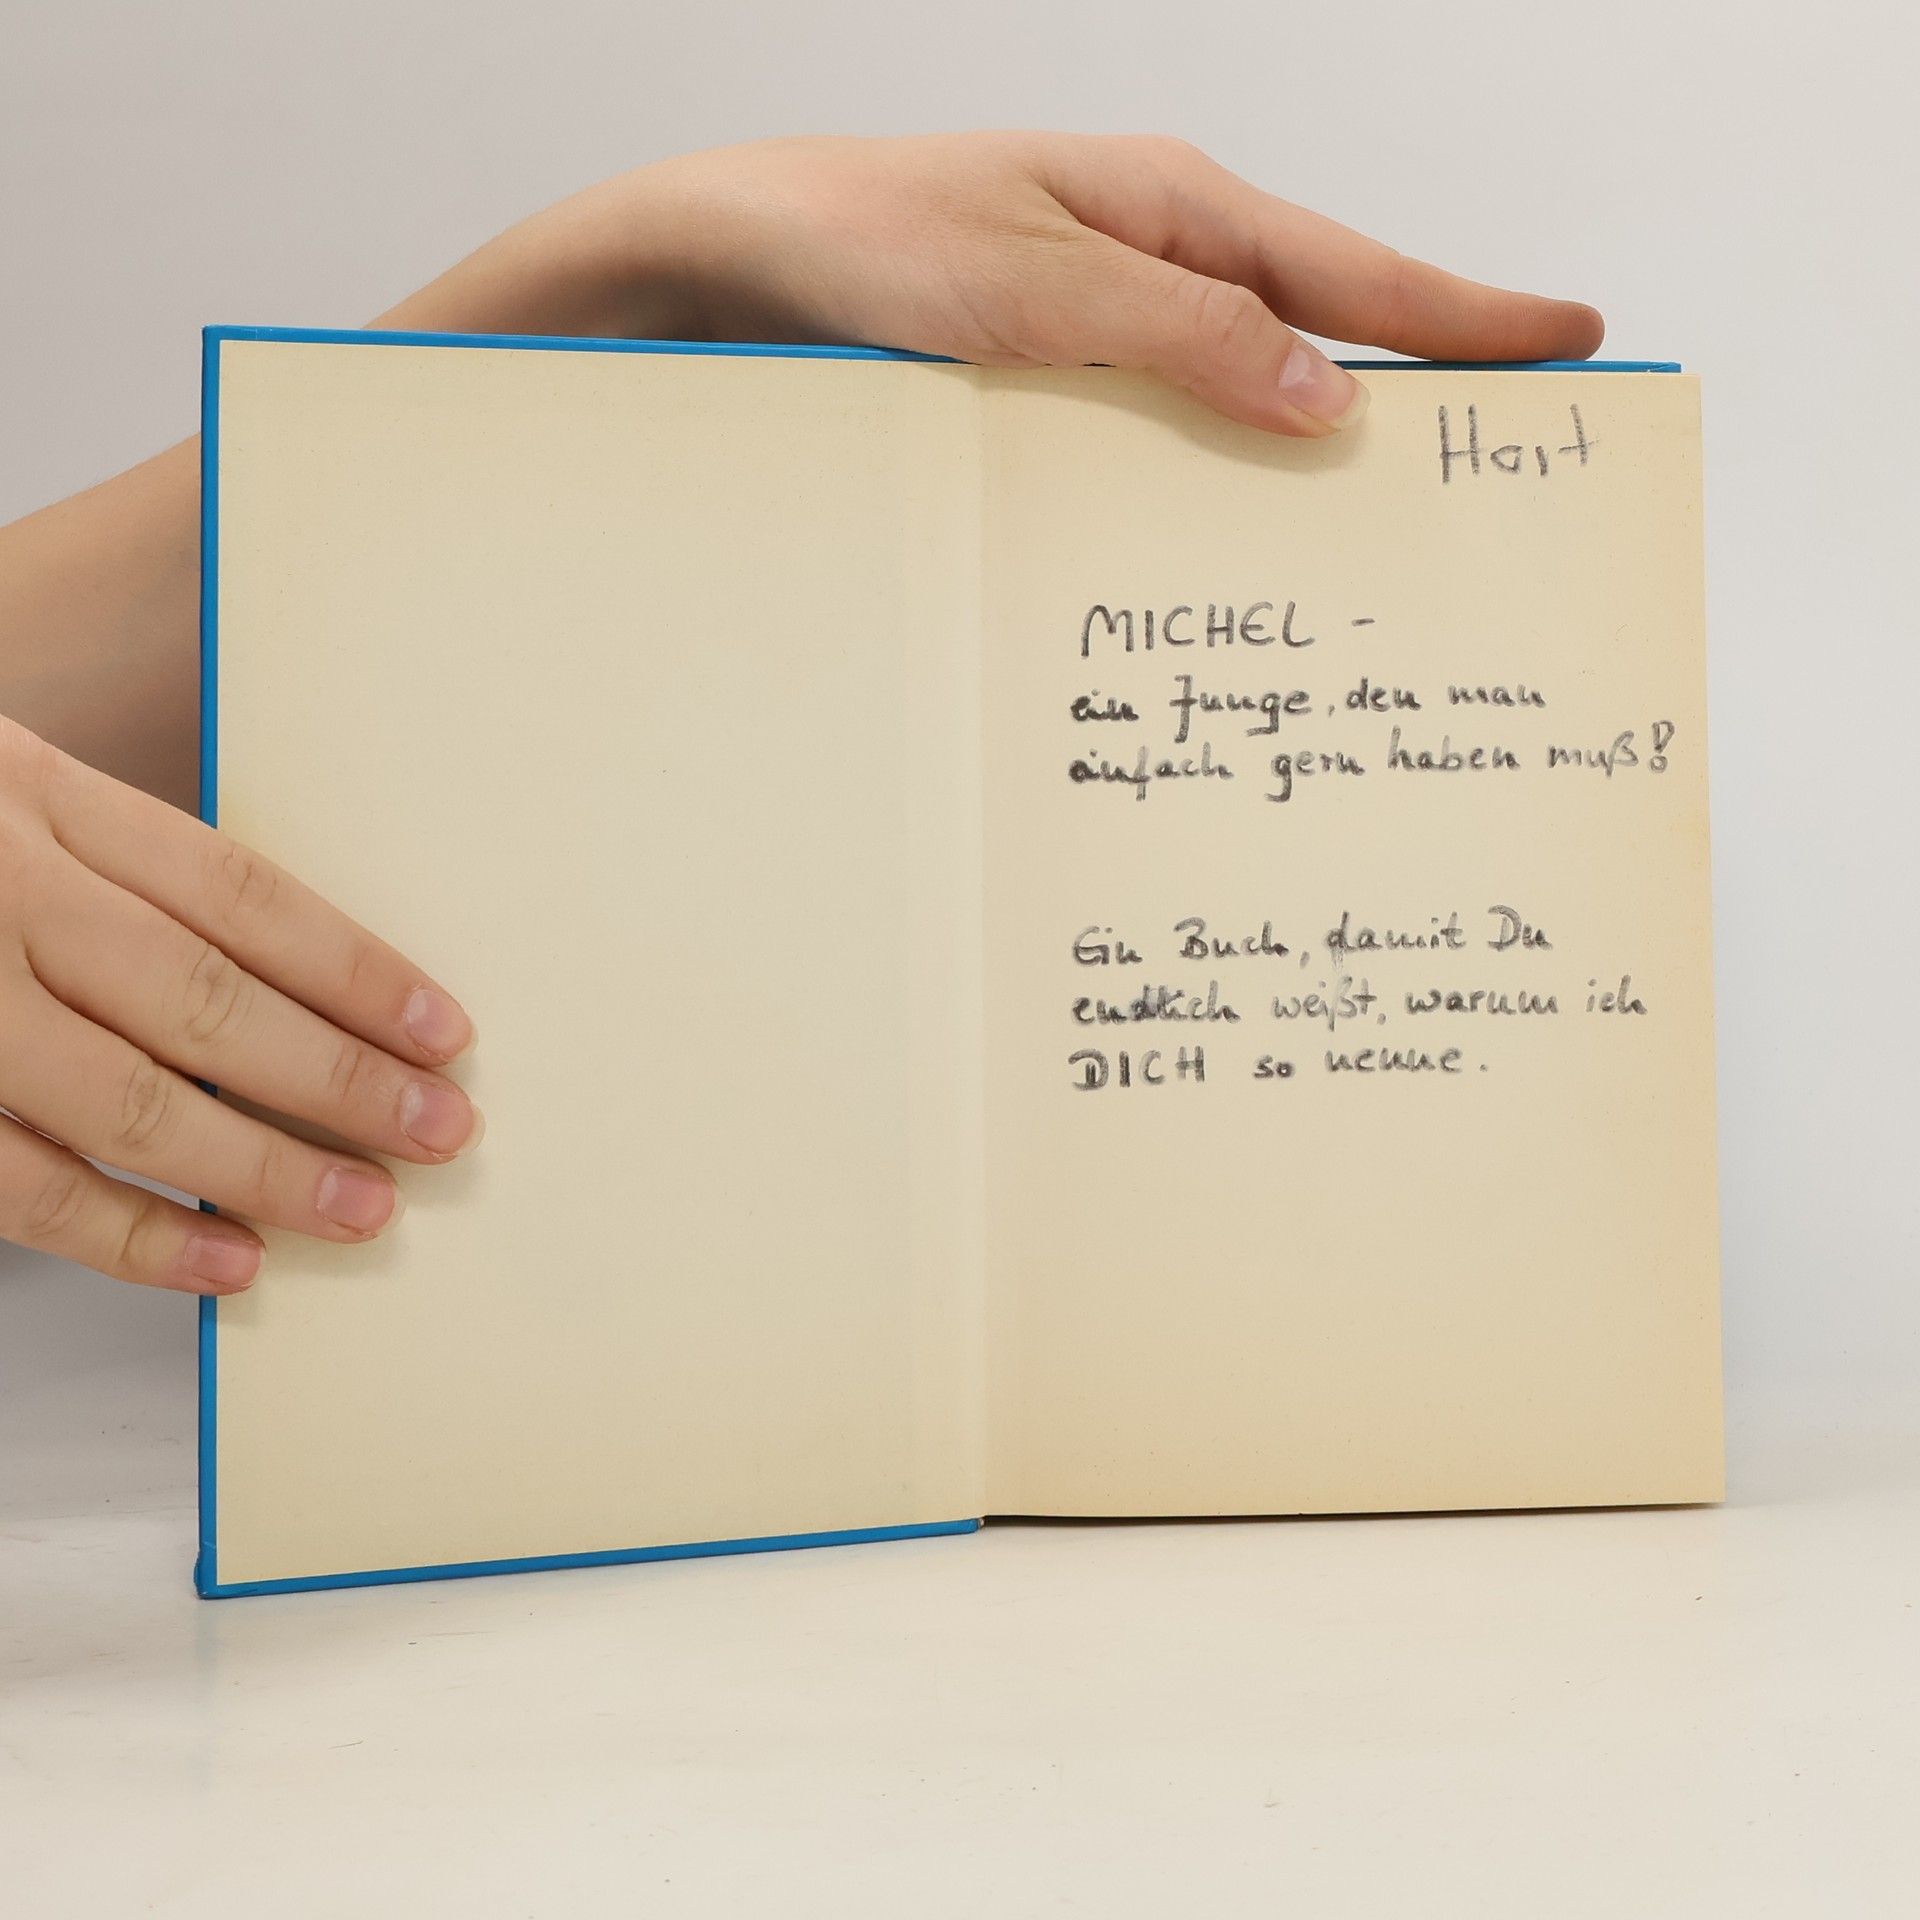 Hort
MICHEL -
ein Junge, den man
einfach gern haben muß!
Ein Buch, damit Du
endlich weißt, warum ich
DICH so nenne.